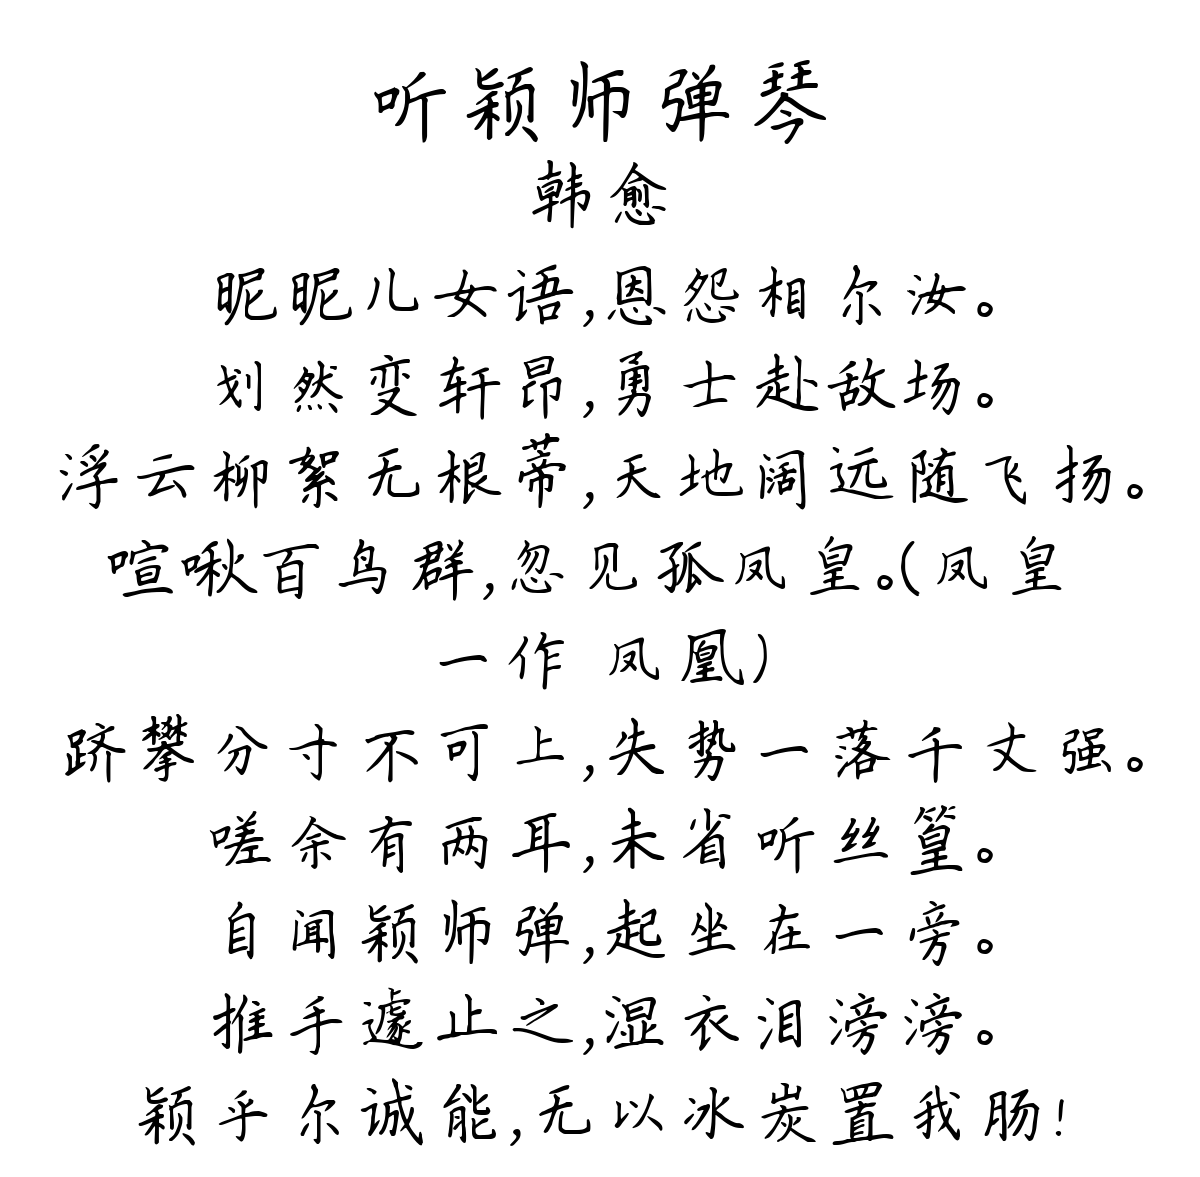 听颖师弹琴
韩愈
昵昵儿女语,恩怨相尔汝。
划然变轩昂,勇士赴敌场。
浮云柳絮无根蒂,天地阔远随飞扬。
喧啾百鸟群,忽见孤凤皇。(凤皇
一作 凤凰)
跻攀分寸不可上,失势一落千丈强。
嗟余有两耳,未省听丝篁。
自闻颖师弹,起坐在一旁。
推手遽止之,湿衣泪滂滂。
颖乎尔诚能,无以冰炭置我肠!